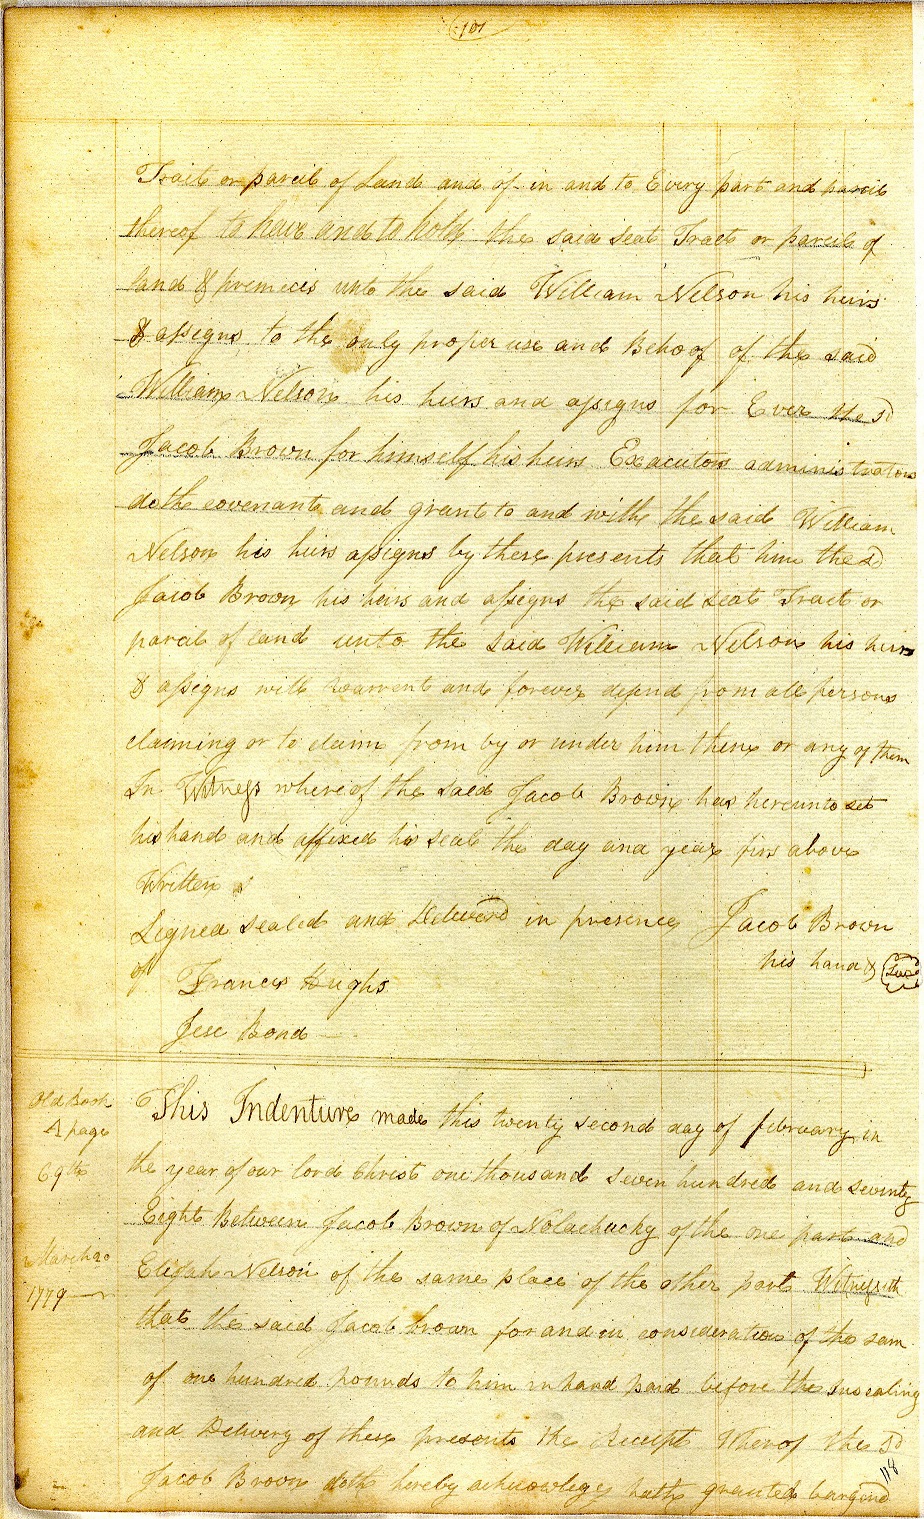 101
Tract or parcil of Land and of in and to Every part and parcil
thereof to have and to hold the said seat Tract or parcile of
land & premices unto the said William Nelson his heirs
& assigns to the only proper use and Behoof of the said
William Nelson his heirs and assigns for Ever the sd
Jacob Brown for himself his heirs Exacutors administrators
doth covenant and grant to and with the said William
Nelson his heirs assigns by these presents that him the sd
Jacob Brown his heirs and assigns the said seat Tract or
parcil of land unto the said William Nelson his heirs
& assigns will warrent and forever defend from all persons
claiming or to claim from by or under him them or any of them
In Witness where of the said Jacob Brown has hereunto set
his hand and affixed his seal the day and year firs above
Written
Signed sealed and Deliverd in presence Jacob Brown
of his hand Seal
Francis Hughs
Jese Bond
Old Book
A page
69th
March 20
1779
This Indenture made this twenty second day of february in
the year of our lord Christ one thousand seven hundred and seventy
Eight Between Jacob Brown of Nolachucky of the one part and
Elijah Nelson of the same place of the other part Witnesseth
that the said Jacob brown for and in consideration of the sum
of one hundred pounds to him in hand paid before the
and Delivery of these presents the Receipt Wherof the sd
Jacob Brown doth hereby acknowlegs hath granted bargind
118